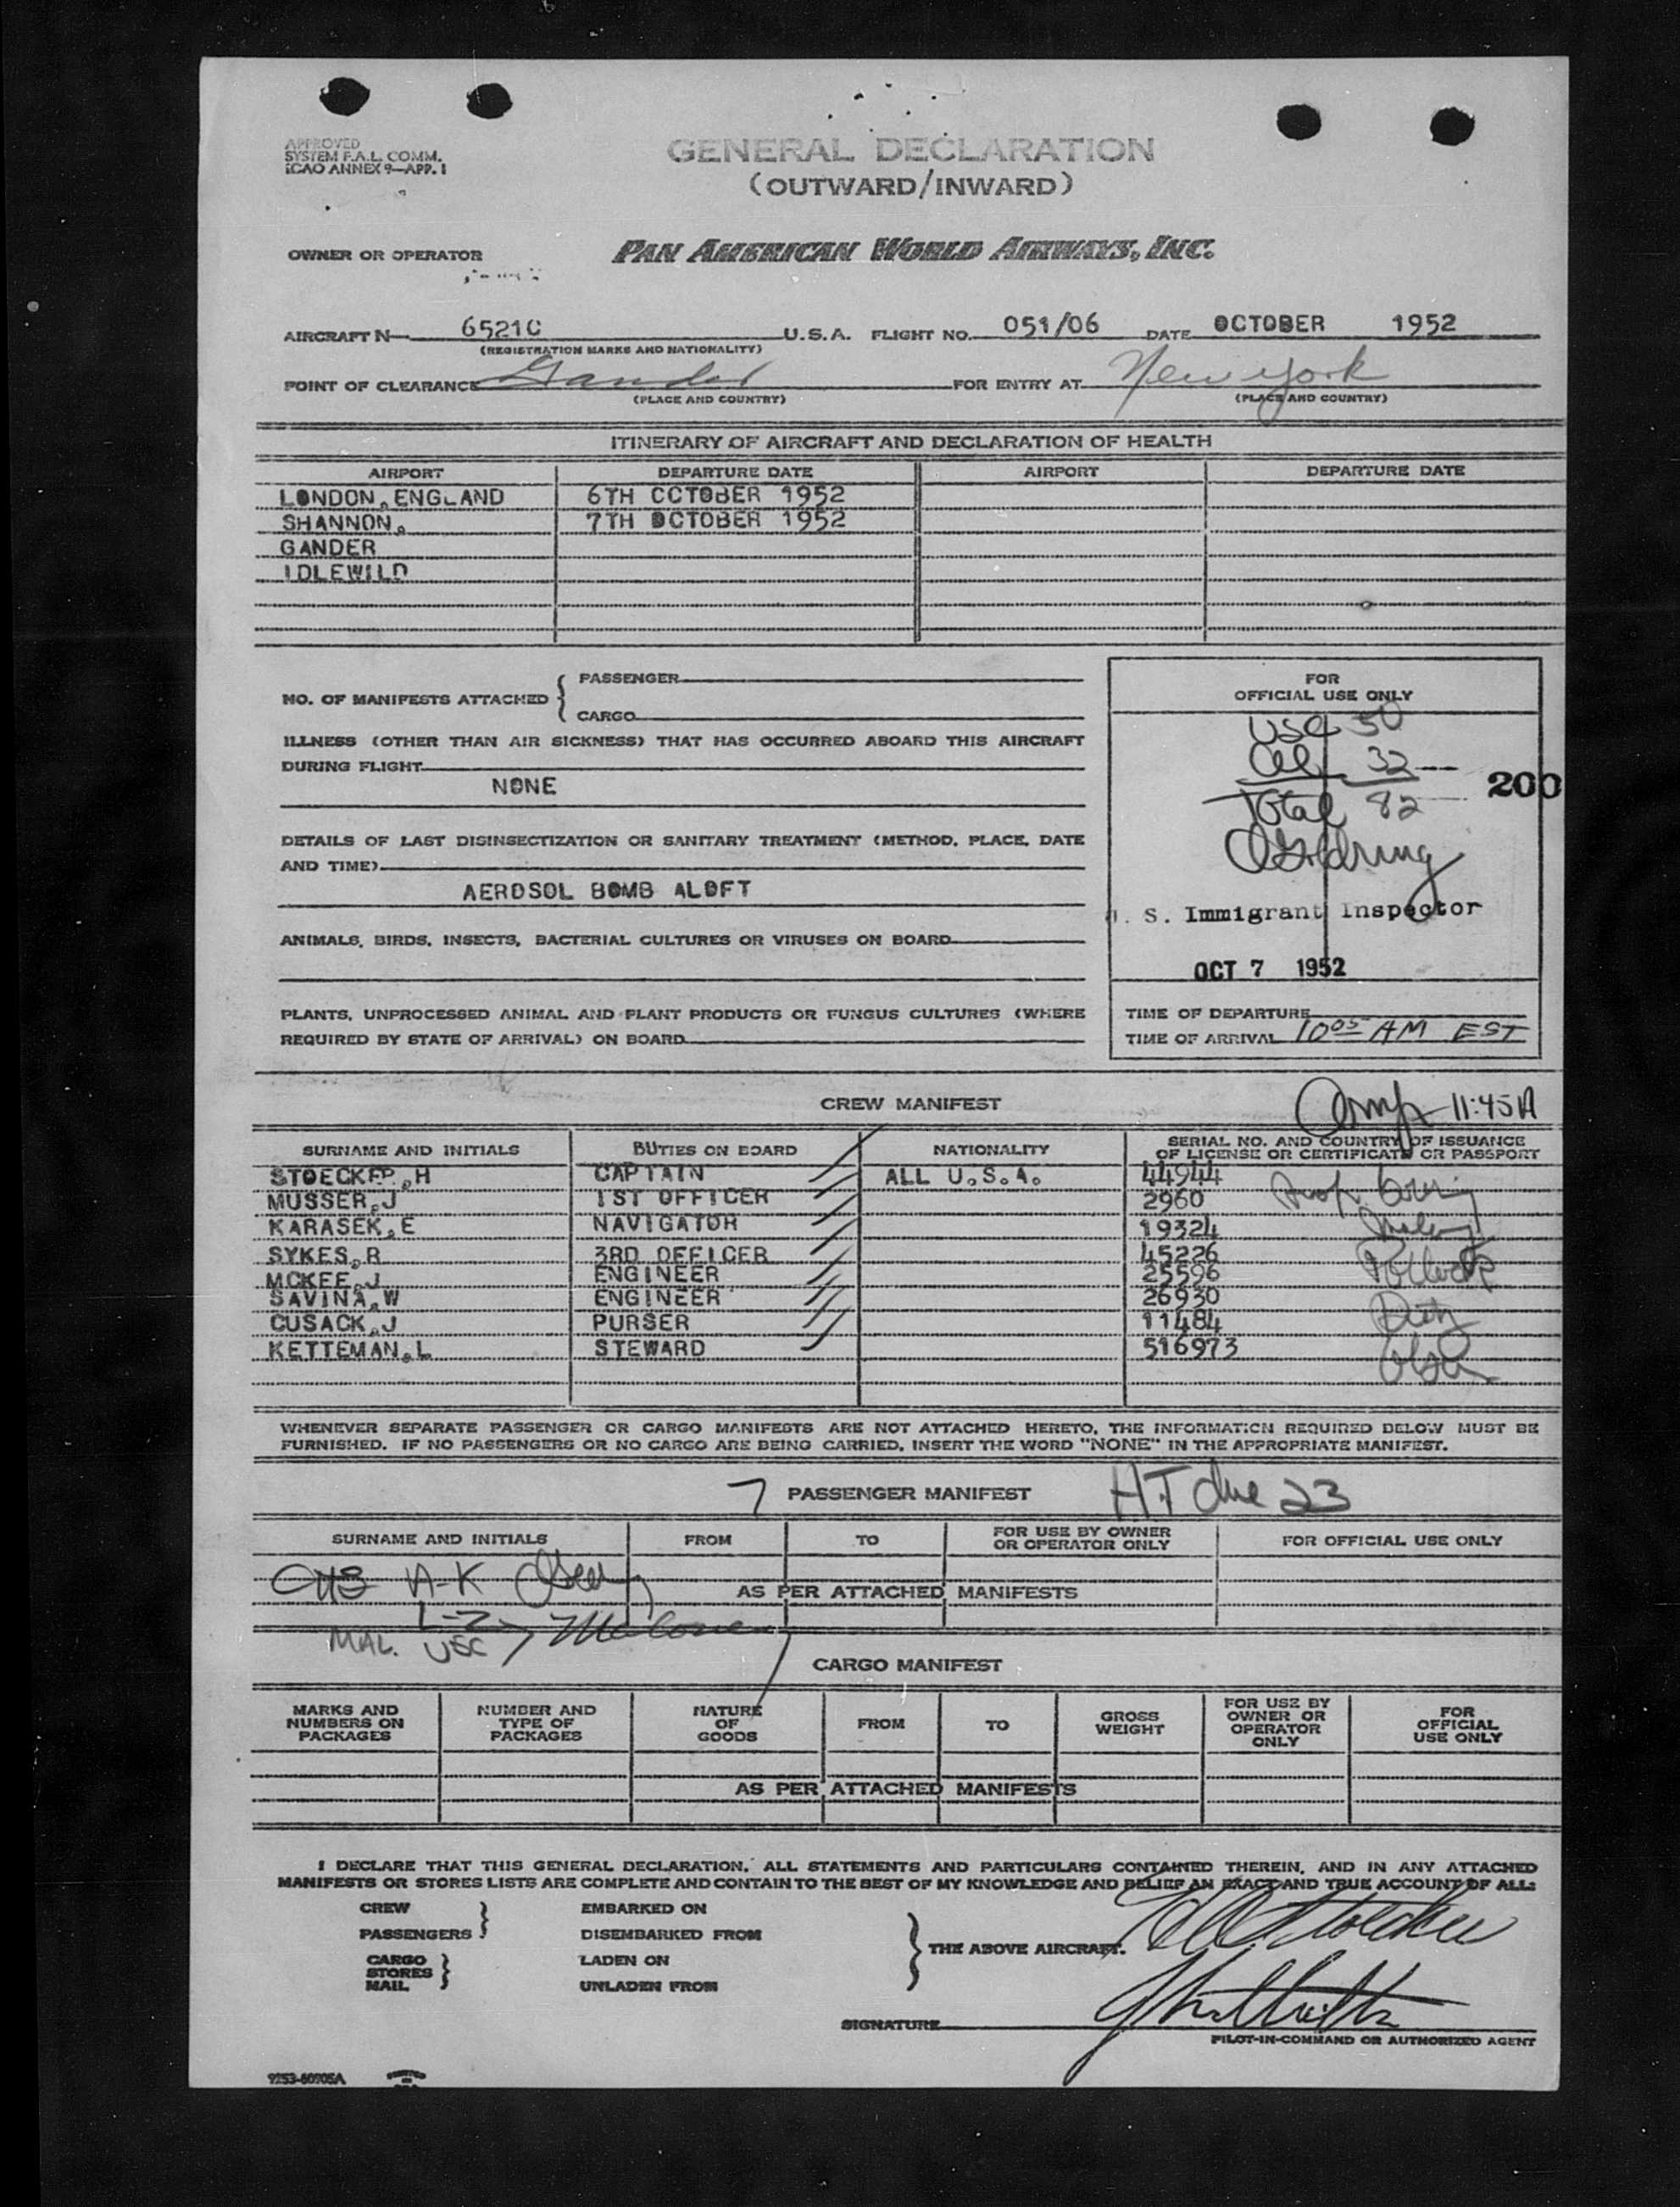 APPROVED
SYSTEM F.A.L. COMM.
ICAO ANNEX 9—APP. I
GENERAL DECLARATION
(OUTWARD/INWARD)
OWNER OR OPERATOR PAN AMERICAN WORLD AIRWAYS, INC.
AIRCRAFT N— 6521C U.S.A. FLIGHT NO. 051/06 DATE OCTOBER 1952
(REGISTRATION MARKS AND NATIONALITY)
POINT OF CLEARANCE Gander FOR ENTRY AT New York
(PLACE AND COUNTRY) (PLACE AND COUNTRY)
ITINERARY OF AIRCRAFT AND DECLARATION OF HEALTH
AIRPORT DEPARTURE DATE AIRPORT DEPARTURE DATE
LONDON, ENGLAND 6TH OCTOBER 1952
SHANNON, 7TH OCTOBER 1952
GANDER
IDLEWILD
NO. OF MANIFESTS ATTACHED { PASSENGER
CARGO
ILLNESS (OTHER THAN AIR SICKNESS) THAT HAS OCCURRED ABOARD THIS AIRCRAFT
DURING FLIGHT
NONE
DETAILS OF LAST DISINSECTIZATION OR SANITARY TREATMENT (METHOD, PLACE, DATE
AND TIME)
AEROSOL BOMB ALOFT
ANIMALS, BIRDS, INSECTS, BACTERIAL CULTURES OR VIRUSES ON BOARD
PLANTS, UNPROCESSED ANIMAL AND PLANT PRODUCTS OR FUNGUS CULTURES (WHERE
REQUIRED BY STATE OF ARRIVAL) ON BOARD
FOR
OFFICIAL USE ONLY
USC 50
Al 32
200
Total 82
U. S. Immigrant Inspector
OCT 7 1952
TIME OF DEPARTURE
TIME OF ARRIVAL 10 05 AM EST
CREW MANIFEST
Comp 11:45A
SURNAME AND INITIALS DUTIES ON BOARD NATIONALITY SERIAL NO. AND COUNTRY OF ISSUANCE
OF LICENSE OR CERTIFICATE OR PASSPORT
STOECKER,H CAPTAIN ALL U.S.A. 44944
MUSSER,J 1ST OFFICER 2960
KARASEK,E NAVIGATOR 19324
SYKES,R 3RD OFFICER 45226
MCKEE,J ENGINEER 25596
SAVINA,W ENGINEER 26930
CUSACK,J PURSER 11484
KETTEMAN,L STEWARD 516973
WHENEVER SEPARATE PASSENGER OR CARGO MANIFESTS ARE NOT ATTACHED HERETO, THE INFORMATION REQUIRED BELOW MUST BE
FURNISHED. IF NO PASSENGERS OR NO CARGO ARE BEING CARRIED, INSERT THE WORD "NONE" IN THE APPROPRIATE MANIFEST.
7 PASSENGER MANIFEST HT due 23
SURNAME AND INITIALS FROM TO FOR USE BY OWNER
OR OPERATOR ONLY FOR OFFICIAL USE ONLY
A-K
AS PER ATTACHED MANIFESTS
L-Z
MAL. USC Malone
CARGO MANIFEST
MARKS AND
NUMBERS ON
PACKAGES
NUMBER AND
TYPE OF
PACKAGES
NATURE
OF
GOODS
FROM
TO
GROSS
WEIGHT
FOR USE BY
OWNER OR
OPERATOR
ONLY
FOR
OFFICIAL
USE ONLY
AS PER ATTACHED MANIFESTS
I DECLARE THAT THIS GENERAL DECLARATION, ALL STATEMENTS AND PARTICULARS CONTAINED THEREIN, AND IN ANY ATTACHED
MANIFESTS OR STORES LISTS ARE COMPLETE AND CONTAIN TO THE BEST OF MY KNOWLEDGE AND BELIEF AN EXACT AND TRUE ACCOUNT OF ALL:
CREW EMBARKED ON
PASSENGERS DISEMBARKED FROM
THE ABOVE AIRCRAFT.
CARGO LADEN ON
STORES
MAIL UNLADEN FROM
SIGNATURE
PILOT-IN-COMMAND OR AUTHORIZED AGENT
9253-60905A